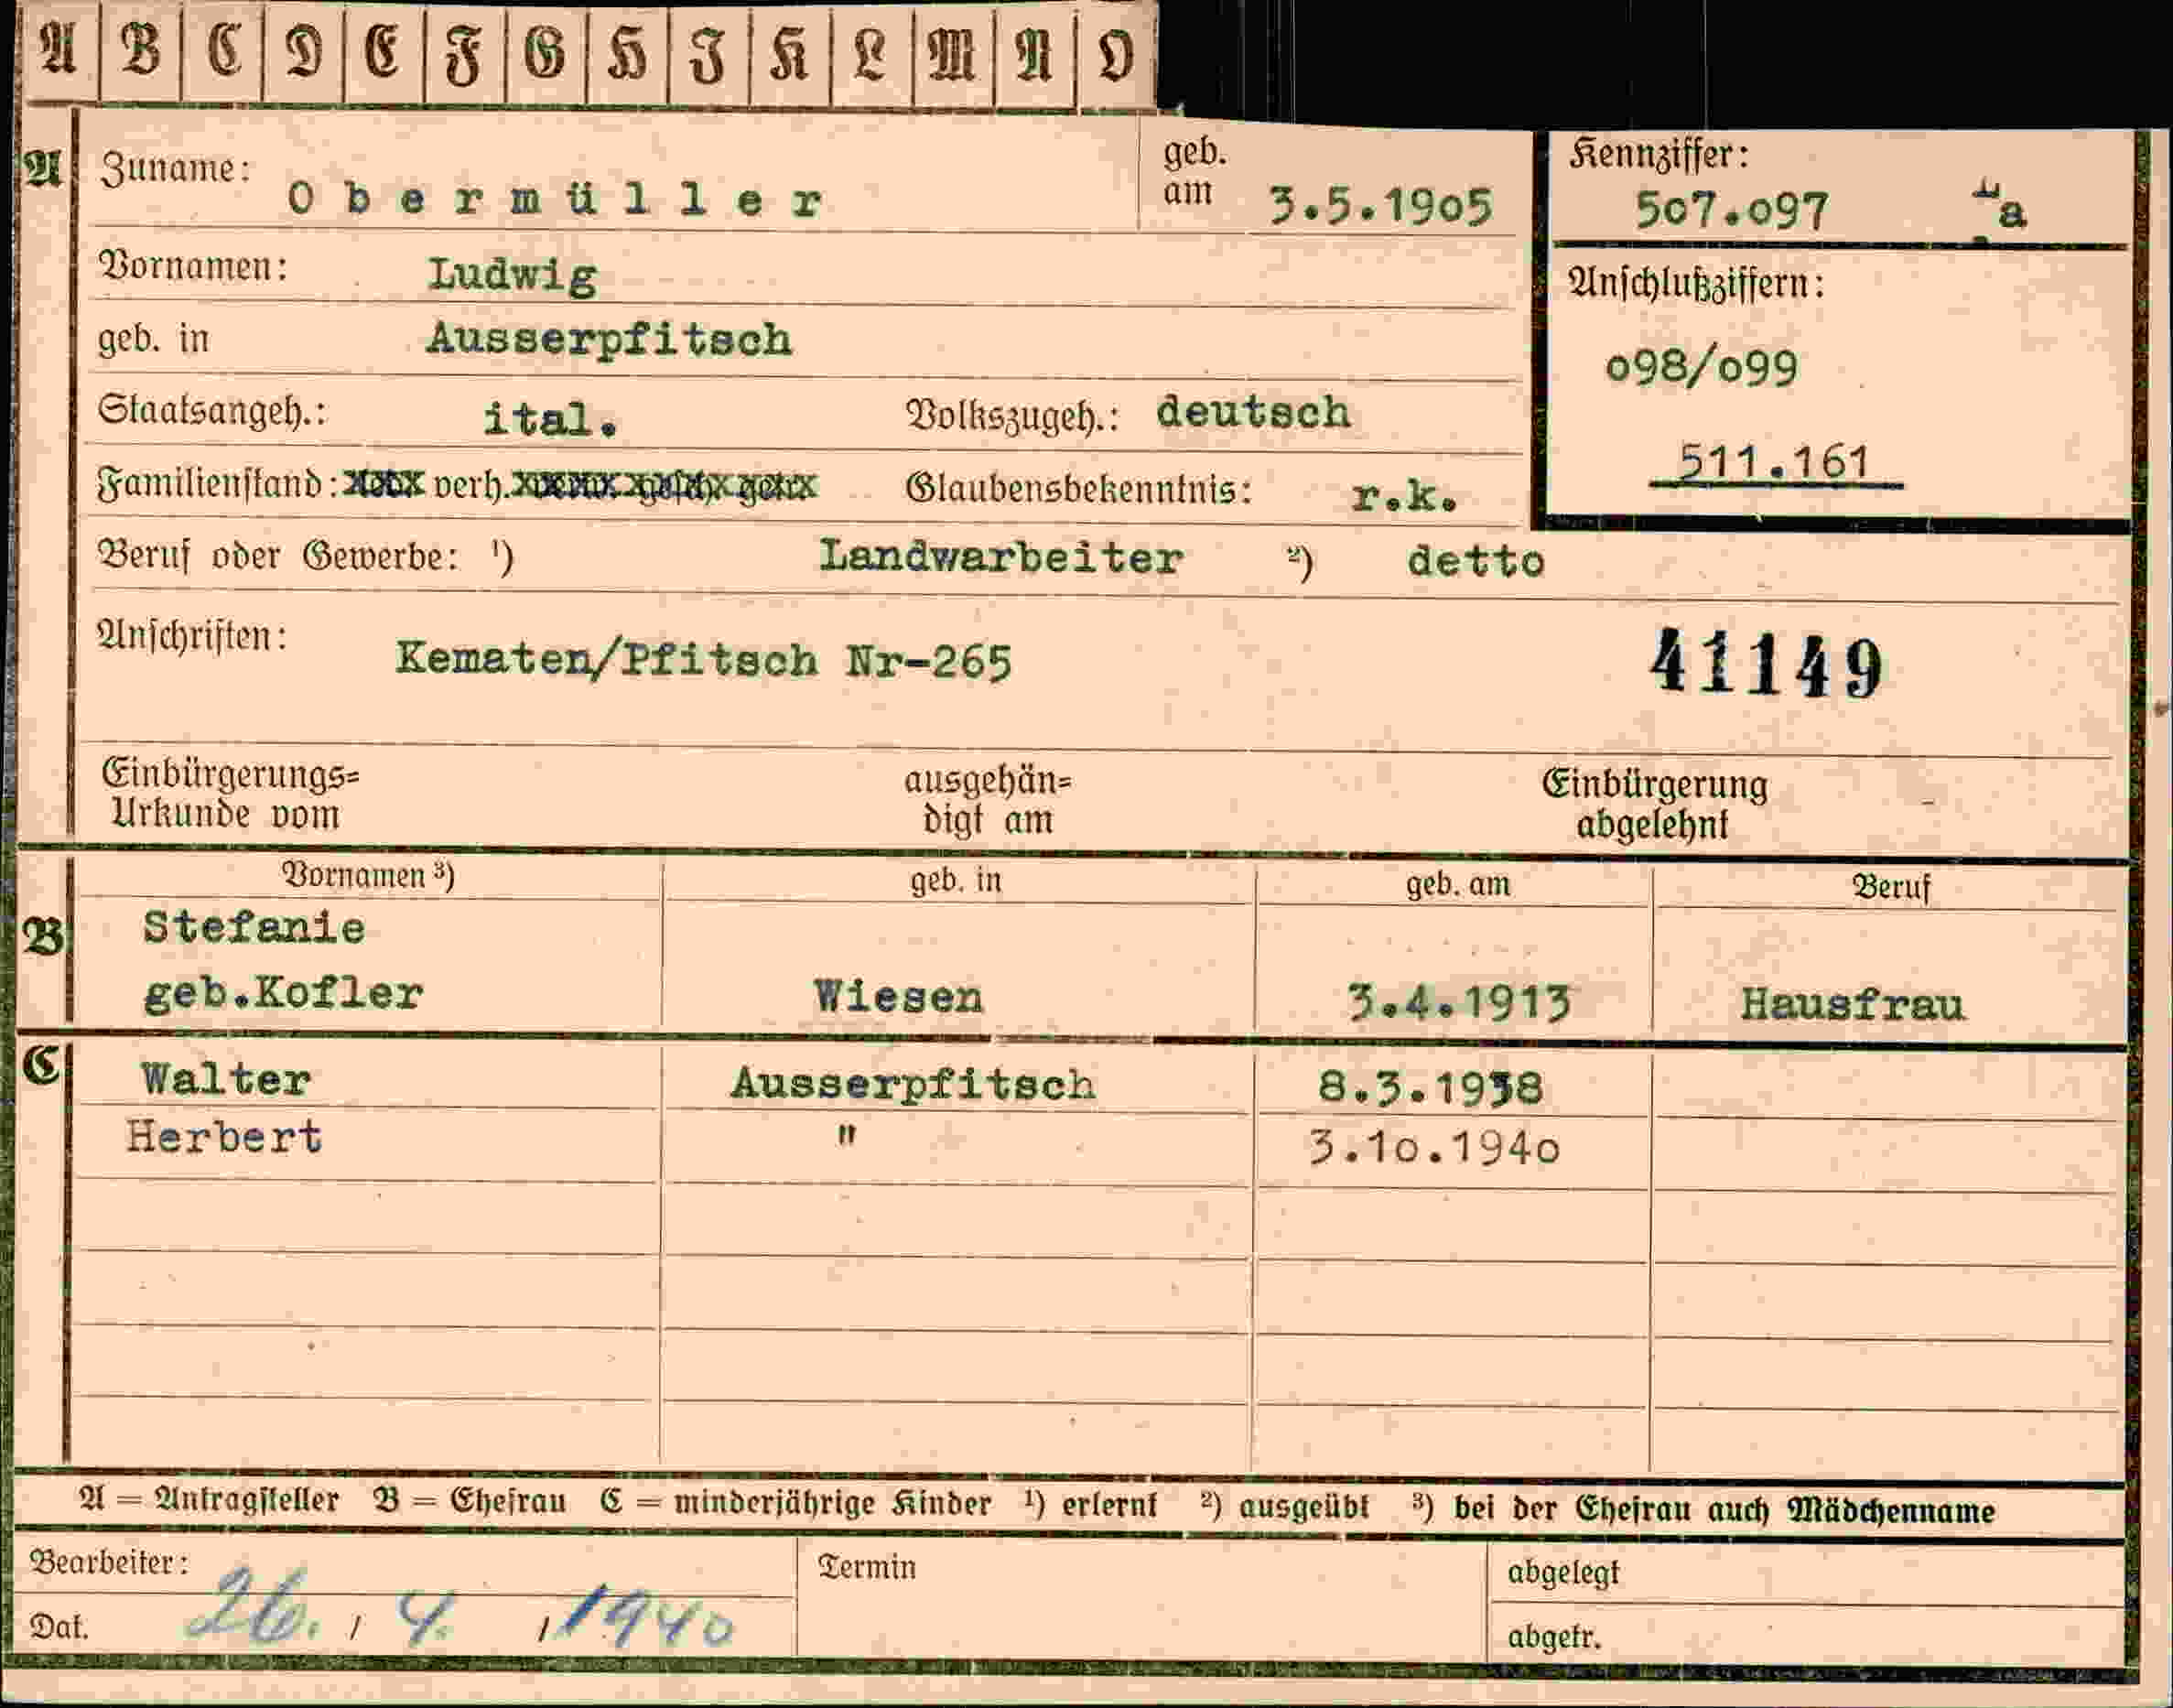 A B C D E F G H I K L M N O
A Zuname: Obermüller geb. am 3.5.1905 Kennziffer: 507.097 a
Vornamen: Ludwig Anschlußziffern:
geb. in Ausserpfitsch 098/099
Staatsangeh.: ital. Volkszugeh.: deutsch
511.161
Familienstand: verh. Glaubensbekenntnis: r.k.
Beruf oder Gewerbe: ¹) Landwarbeiter ²) detto
Anschriften: Kematen/Pfitsch Nr-265 41149
Einbürgerungs= ausgehän= Einbürgerung
Urkunde vom digt am abgelehnt
Vornamen ³) geb. in geb. am Beruf
B Stefanie
geb.Kofler Wiesen 3.4.1913 Hausfrau
C Walter Ausserpfitsch 8.3.1938
Herbert " 3.10.1940
A = Antragsteller B = Ehefrau C = minderjährige Kinder ¹) erlernt ²) ausgeübt ³) bei der Ehefrau auch Mädchenname
Bearbeiter: Termin abgelegt
Dat. 26. / 4. / 1940 abgetr.